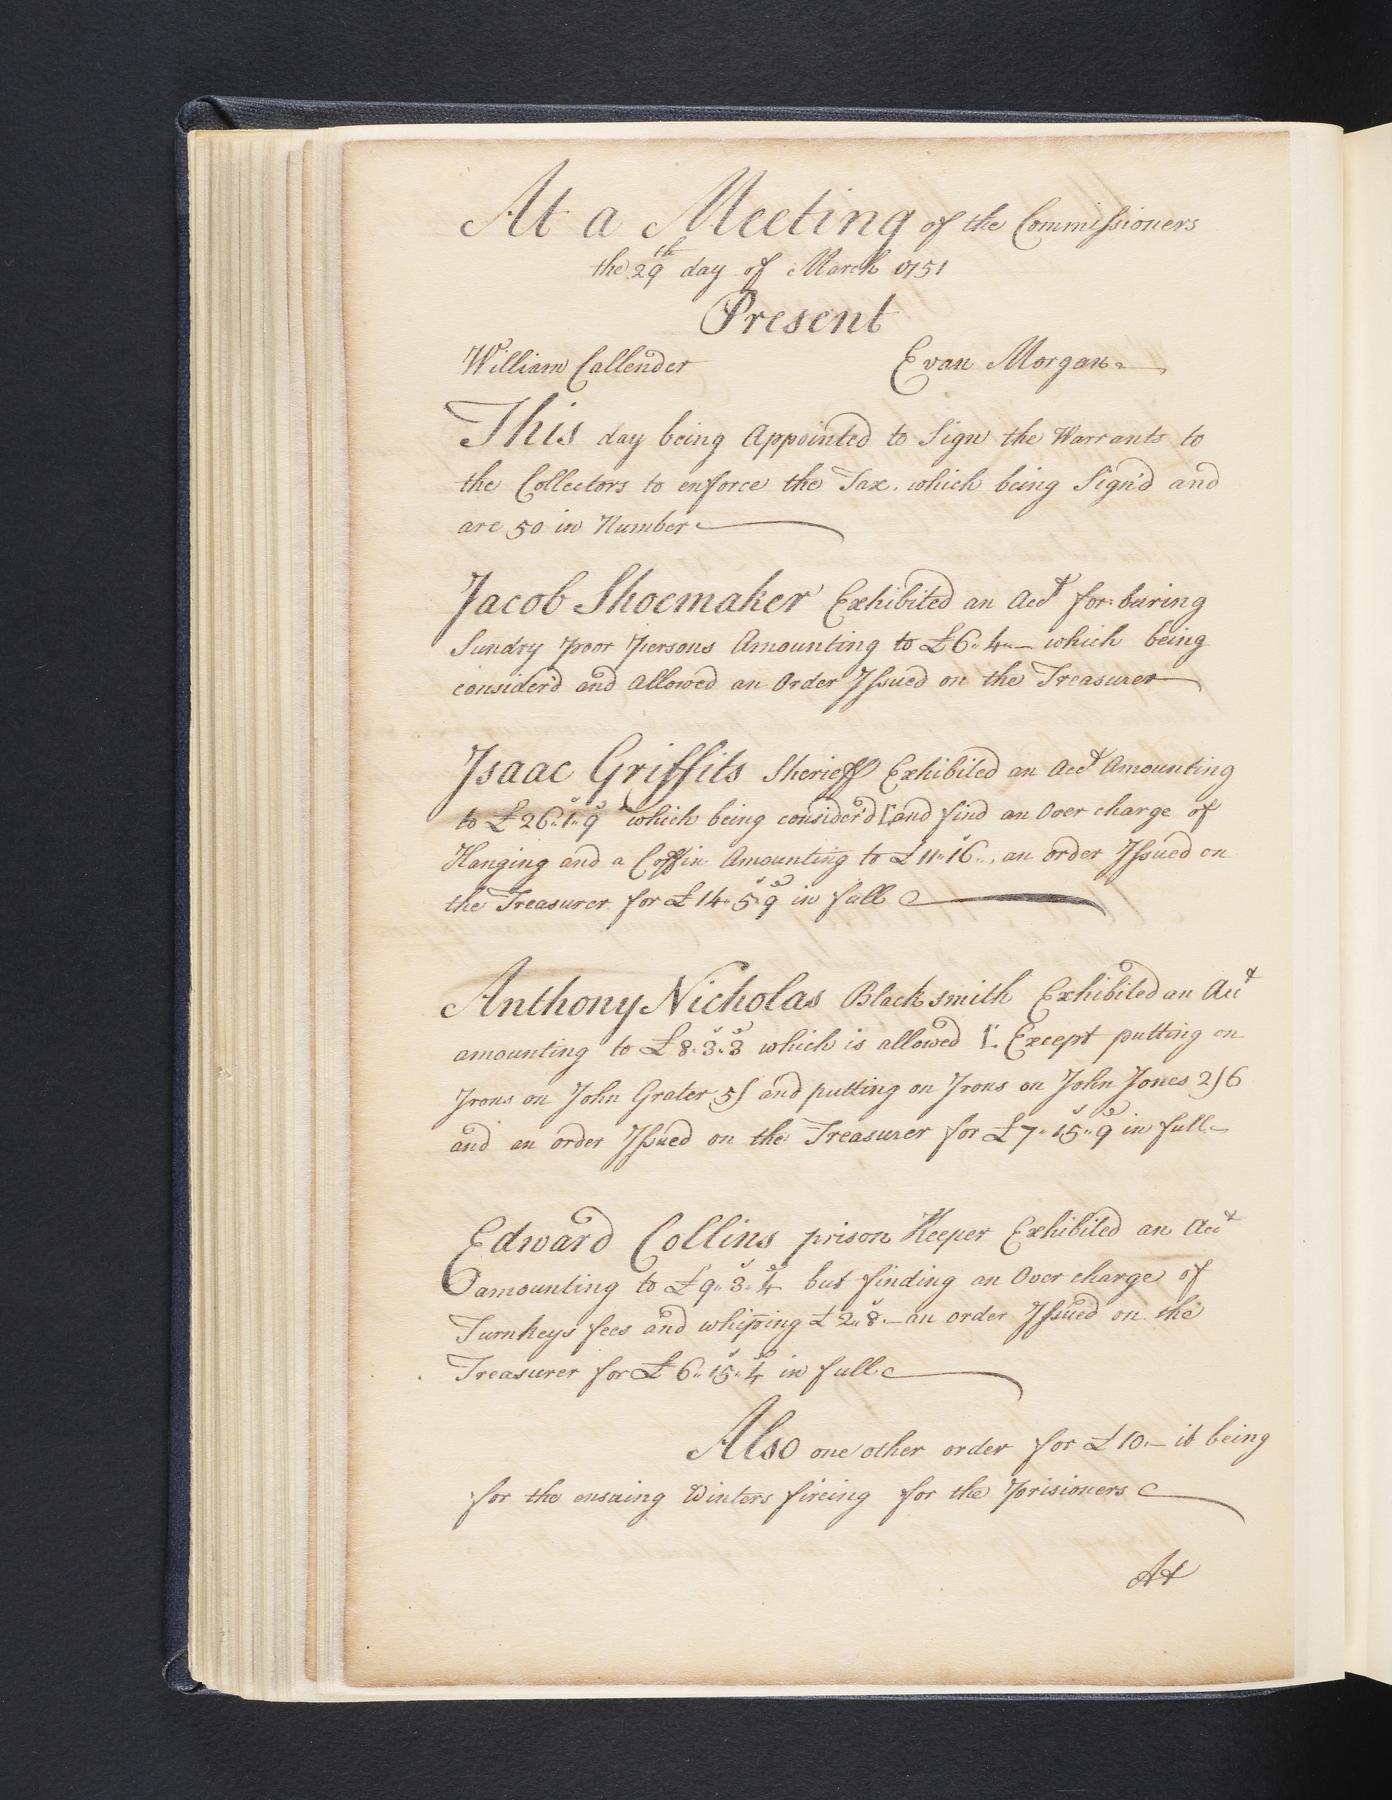 At a Meeting of the Commissioners
the 29th day of March 1751
Present
William Callender Evan Morgan
This day being Appointed to Sign the Warrants to
the Collectors to enforce the Tax. which being Sign'd and
are 50 in Number
Jacob Shoemaker Exhibited an Acct for buring
Sundry poor persons Amounting to £6.. 4..— which being
consider'd and allowed an Order Issued on the Treasurer
Isaac Griffits Sherieff Exhibited an Acct Amounting
to £26..1s..9d which being consider'd [and find an Over charge of
Hanging and a Coffin Amounting to £11..16s.. an order Issued on
the Treasurer for £14..5s..9d in full
Anthony Nicholas Blacksmith Exhibited an Acct
amounting to £8..3s..3d which is allowed [. Except putting on
Irons on John Grater 5/ and putting on Irons on John Jones 2/6
and an order Issued on the Treasurer for £7..15s..9d in full
Edward Collins prison Keeper Exhibited an Acct
amounting to £9..3s..4d but finding an Over charge of
Turnkeys fees and whiping £2..8s..— an order Issued on the
Treasurer for £6..15s..4d in full
Also one other order for £10..— it being
for the ensuing Winters fireing for the Prisioners
At